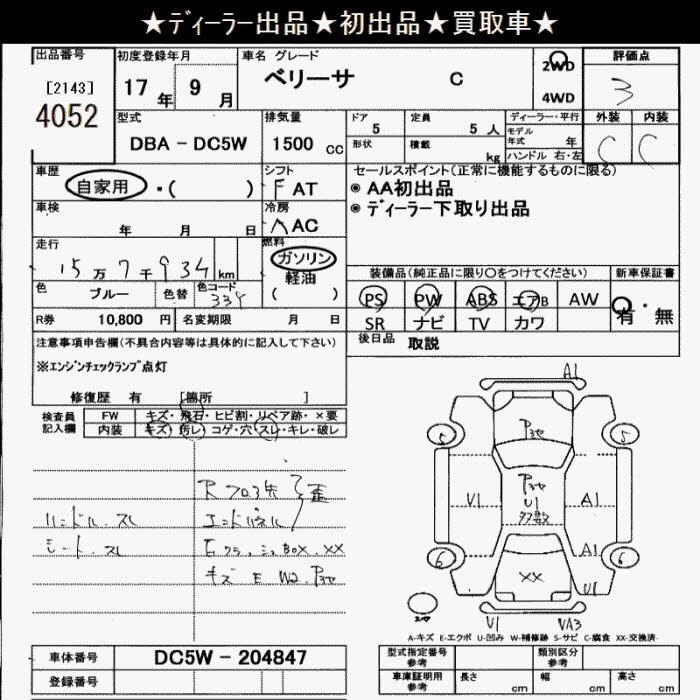 ★ディーラー出品★初出品★買取車★
出品番号 初度登録年月 車名 グレード 評価点
[2143]
4052
17 年 9 月
ベリーサ C
2WD
4WD
3
型式 排気量 ドア 定員 ディーラー・平行 外装 内装
DBA - DC5W 1500 cc 5 5 人 モデル年式 年 C C
形状 積載 kg ハンドル 右・左
車歴 シフト セールスポイント(正常に機能するものに限る)
自家用 ・( ) F AT
◉ AA初出品
◉ ディーラー下取り出品
車検 冷房
年 月 日 AC
走行 燃料
15 万 7 千 934 km ガソリン
軽油
( )
装備品(純正品に限り○をつけてください) 新車保証書
色 ブルー 色替 色コード 339
PS PW ABS エアB AW 有・無
SR ナビ TV カワ
R券 10,800 円 名変期限 月 日
後日品 取説
注意事項申告欄(不具合内容等は具体的に記入して下さい)
※エンジンチェックランプ点灯
修復歴 有 [箇所 ]
検査員記入欄 FW キズ・飛石・ヒビ割・リペア跡・×要
内装 キズ・汚レ・コゲ・穴・スレ・キレ・破レ
ハンドル、スレ
シート、スレ
エンドパネル
BOX、XX
キズ E W2、
A1
5 5
U1 U1 A1
多数
A1
6 6
XX
U1
U1 VA3
A-キズ E-エクボ U-凹み W-補修跡 S-サビ C-腐食 XX-交換済
車体番号 DC5W - 204847
型式指定番号 参考 類別区分 参考
登録番号
車庫証明用 参考 長さ cm 幅 cm 高さ cm